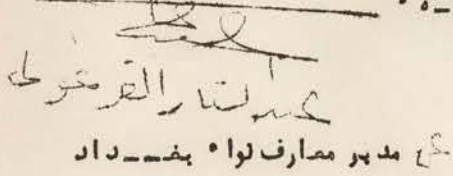 عبدالستار القرغولي
ع/ مدير معارف لواء بغــداد